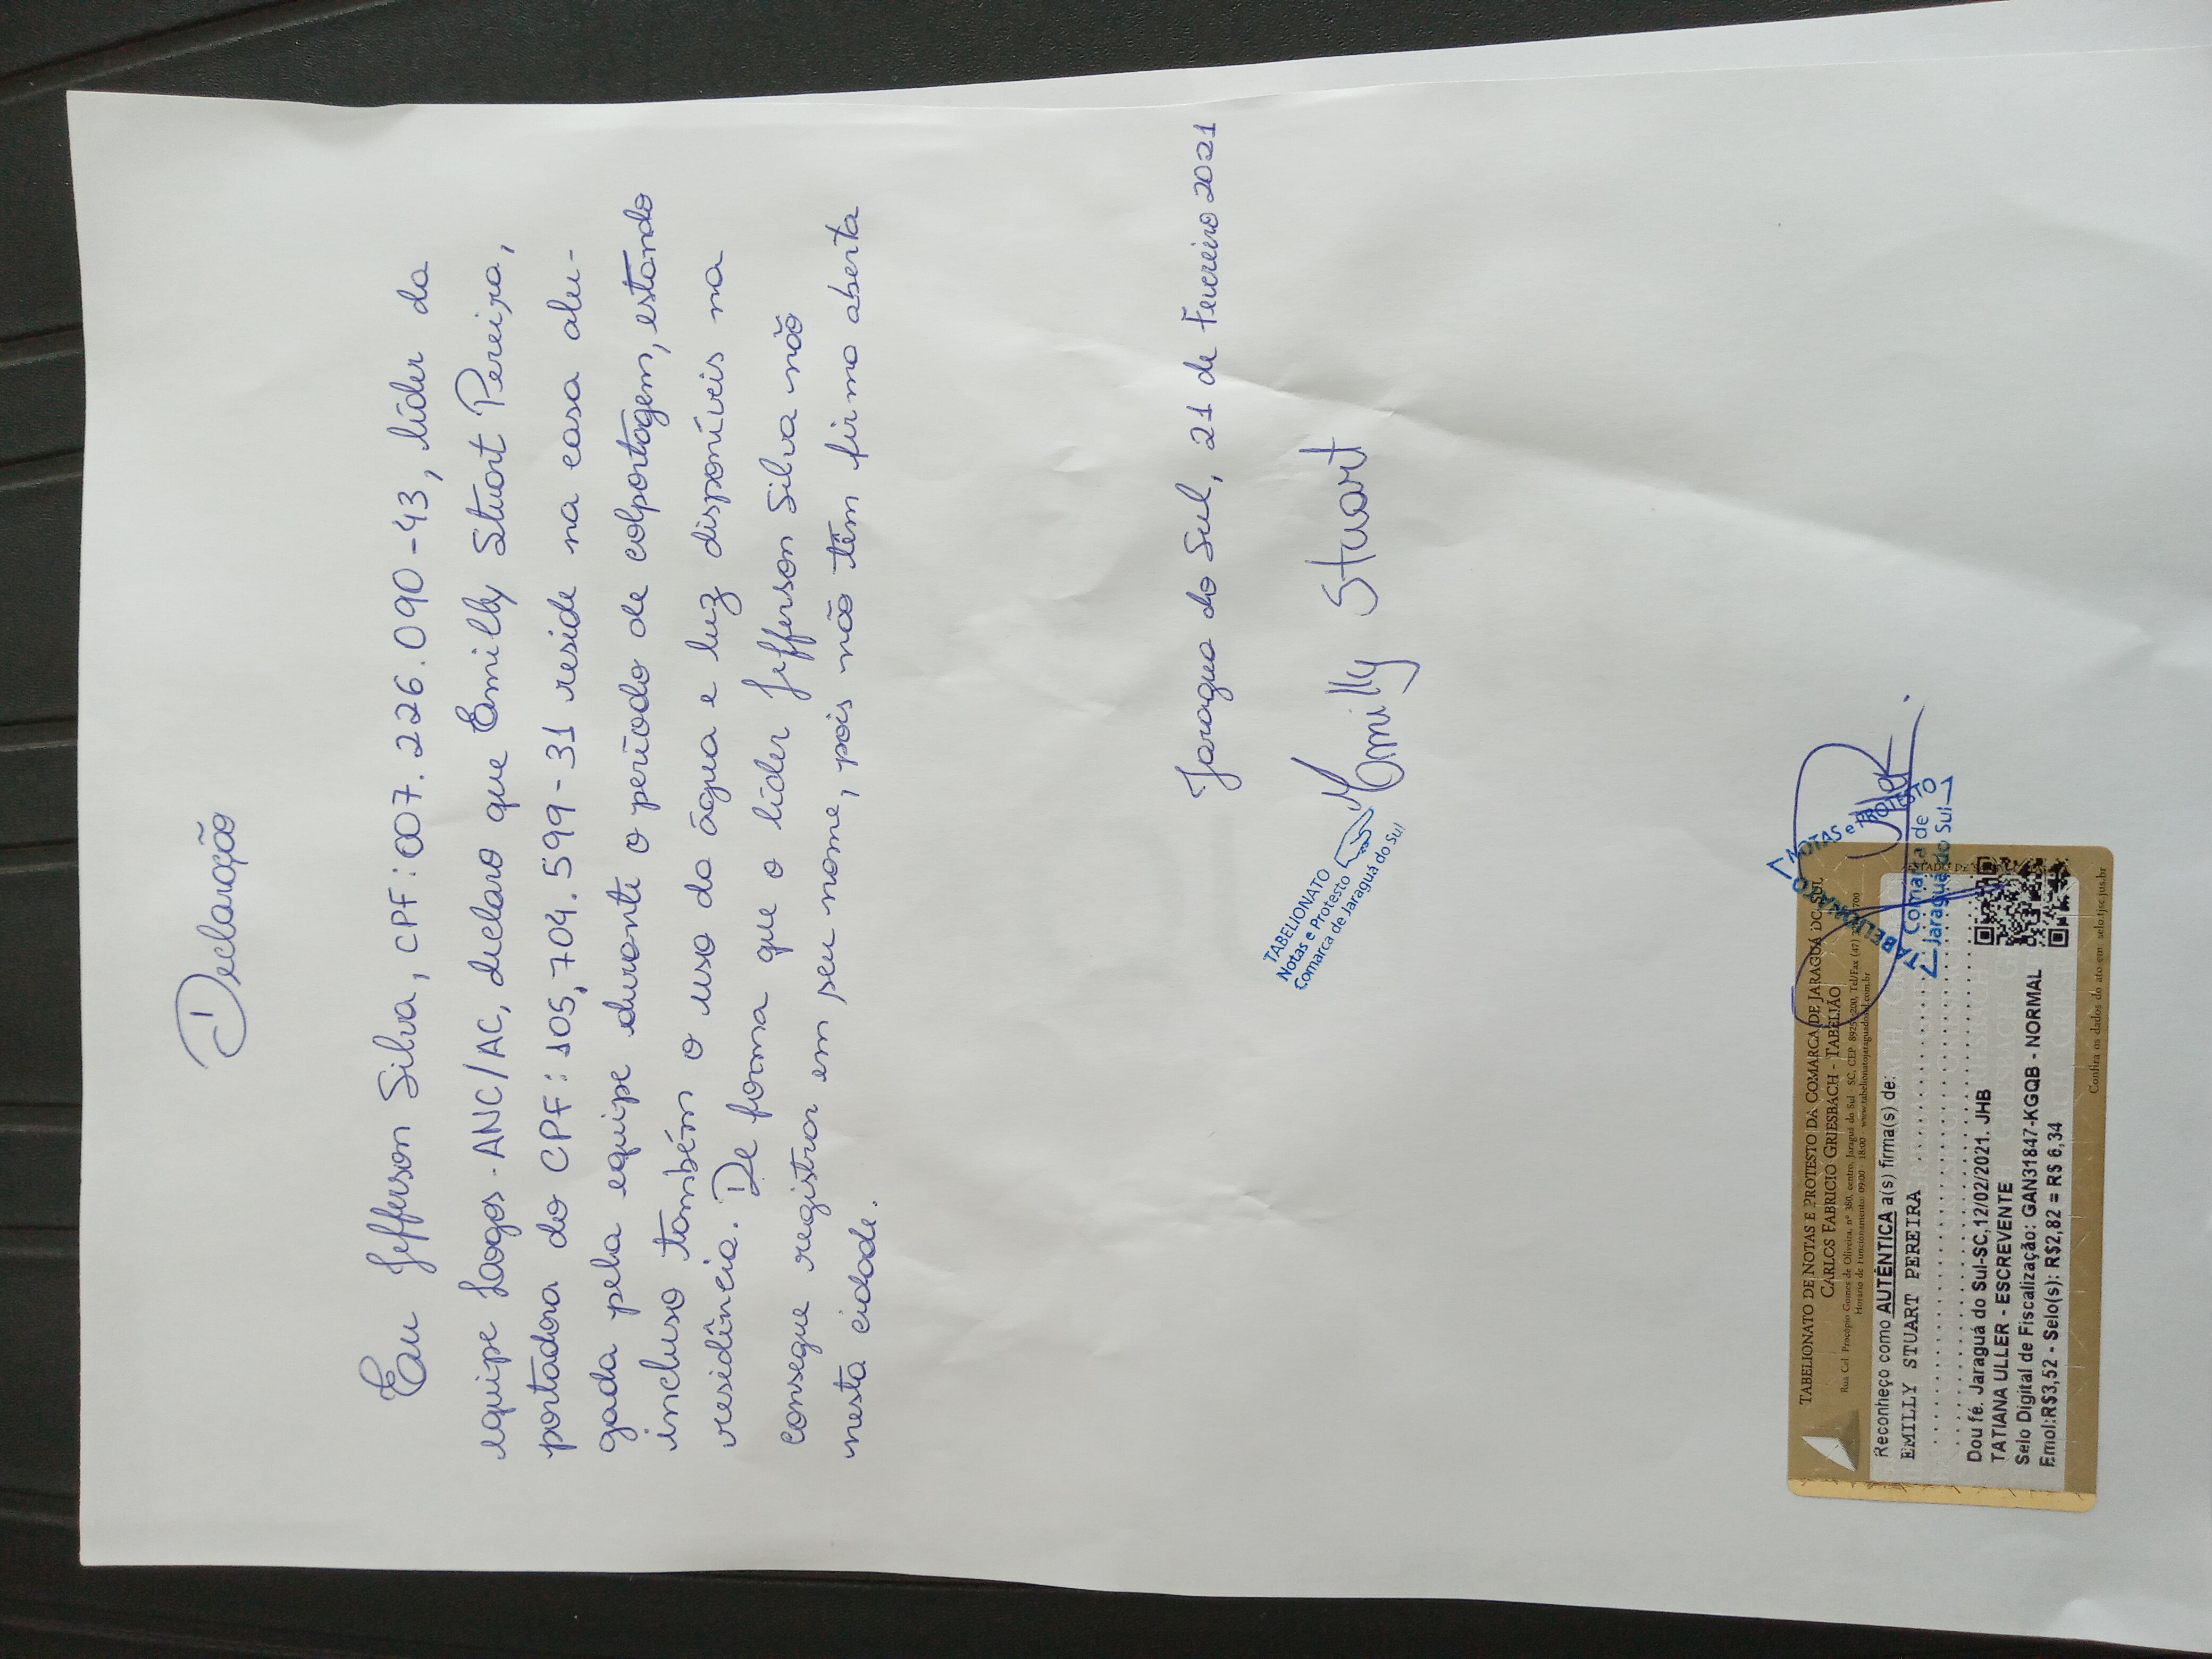 Declaração
Eu Jefferson Silva, CPF: 007.226.090-43, líder da
equipe Logos-ANC/AC, declaro que Emilly Stuart Pereira,
portadora do CPF: 105.704.599-31 reside na casa alu-
gada pela equipe durante o período de colportagem, estando
incluso também o uso da água e luz disponíveis na
residência. De forma que o líder Jefferson Silva não
consegue registrar em seu nome, pois não têm firma aberta
nesta cidade.
Jaraguá do Sul, 21 de Fevereiro 2021
TABELIONATO
Notas e Protesto
Comarca de Jaraguá do Sul
Emilly Stuart
TABELIONATO DE NOTAS E PROTESTO DA COMARCA DE JARAGUÁ DO SUL
CARLOS FABRICIO GRIESBACH - TABELIÃO
Rua Cel. Procópio Gomes de Oliveira, nº 380, centro, Jaraguá do Sul - SC, CEP: 8925 -200, Tel/Fax (47) 700
Horário de Funcionamento: 09:00 - 18:00 - www.tabelionatojaraguadosul.com.br
Reconheço como AUTÊNTICA a(s) firma(s) de:
EMILLY STUART PEREIRA
Dou fé. Jaraguá do Sul-SC,12/02/2021. JHB
TATIANA ULLER - ESCREVENTE
Selo Digital de Fiscalização: GAN31847-KGQB - NORMAL
Emol:R$3,52 - Selo(s): R$2,82 = R$ 6,34
Confira os dados do ato em: selo.tjsc.jus.br
TABELIONATO
NOTAS e PROTESTO
Comarca de
Jaraguá do Sul